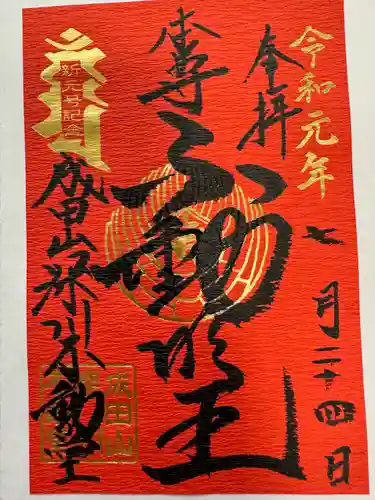 令和元年
七月二十四日
奉拝
本尊
不動明王
新元号記念
成田山